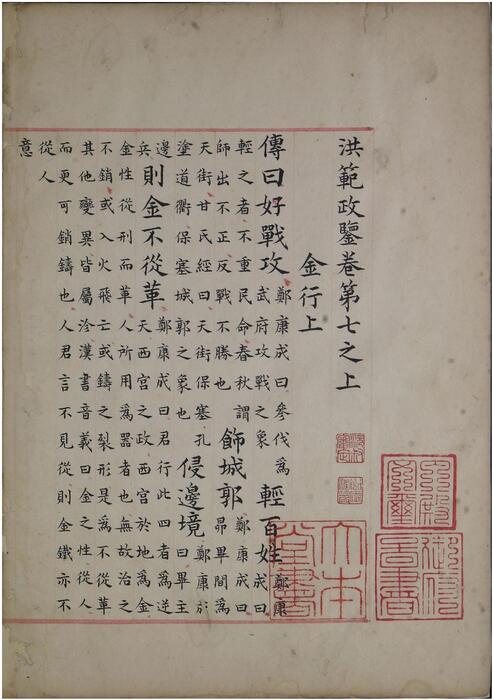 洪範政鑒卷第七之上
金行上
傳曰好戰攻鄭康成曰參伐爲武府攻戰之象輕百姓鄭康成曰
輕之者不重民命春秋謂師出不正反戰不勝也飾城郭鄭康成曰昴畢間爲
天街甘氏經曰天街保塞孔塗道衢保塞城郭之象也侵邊境鄭康成曰畢主
邊兵則金不從革鄭康成曰君行此四者爲逆天西宮之政西宮於地爲金
金性從刑而革人所用爲器者也無故冶之不銷或入火飛亡或鑄之裂形是爲不從革
其他變異皆屬沴漢書音義曰金之性從人而更可銷鑄也人君言不見從則金鐵亦不
從人意
大本堂書